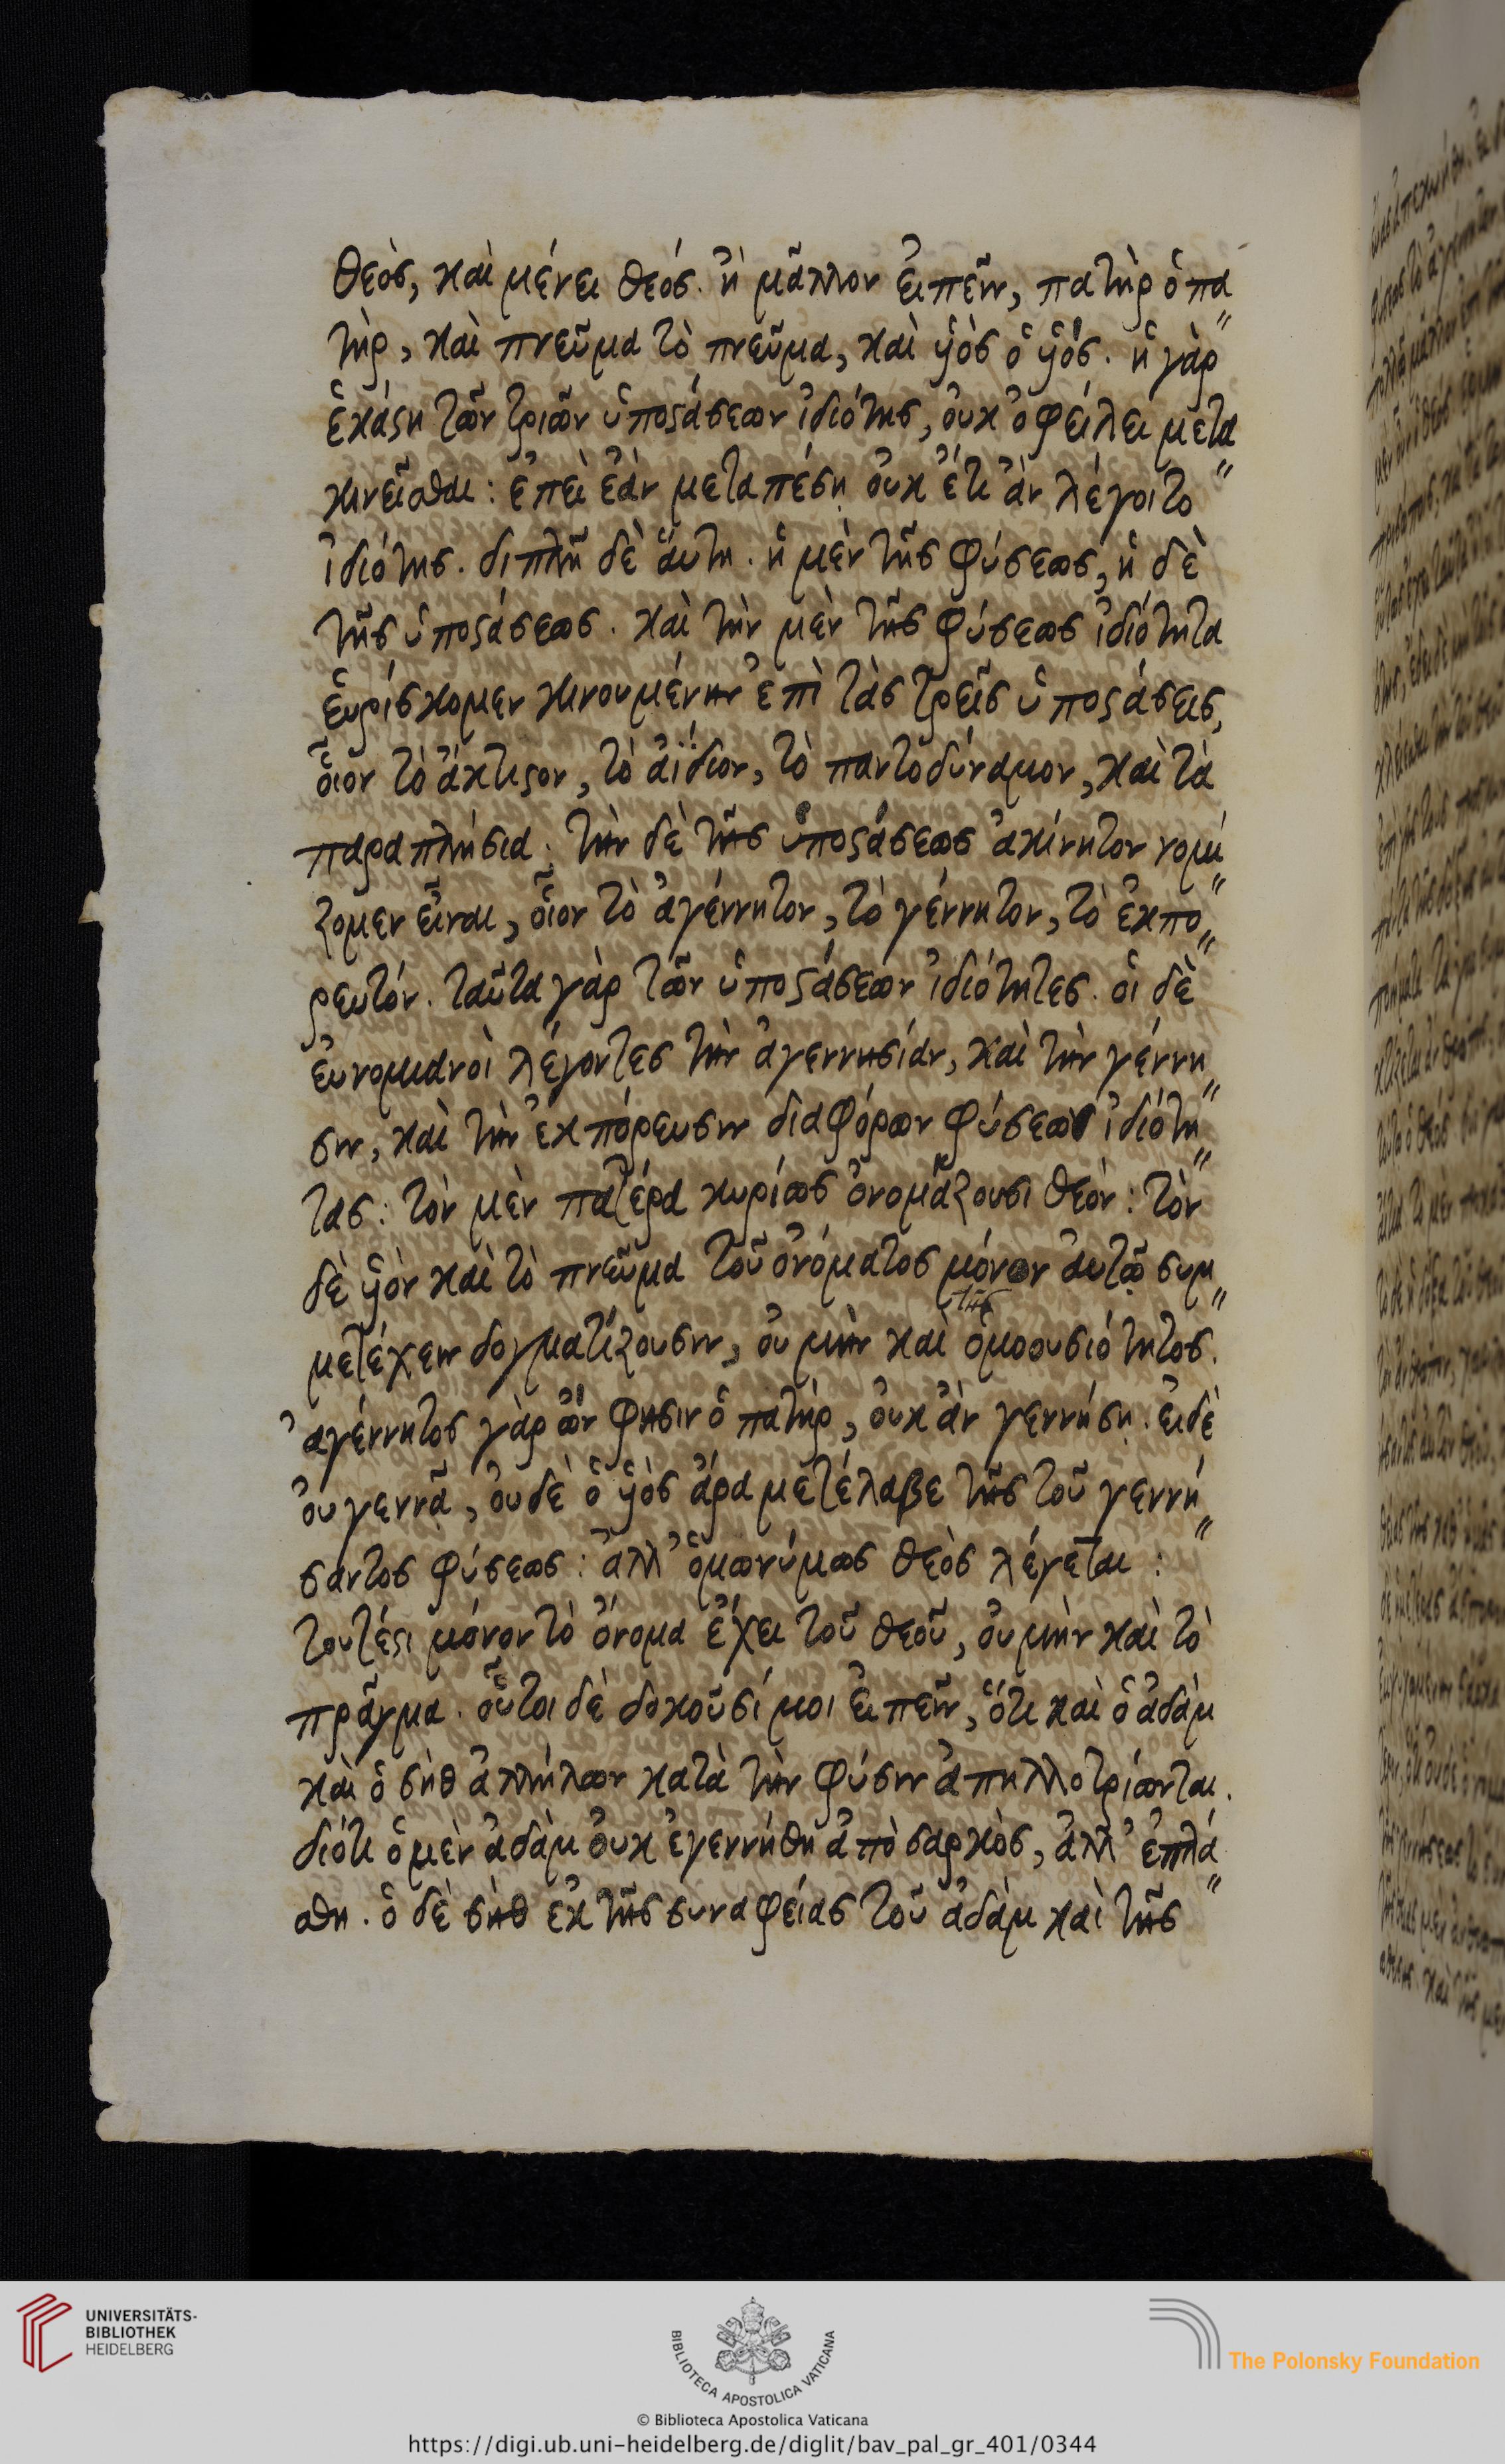 θεὸς, καὶ μένει θεός. ἢ μᾶλλον εἰπεῖν, πατὴρ ὁ πα
τὴρ, καὶ πνεῦμα τὸ πνεῦμα, καὶ ὑὸς ὁ ὑός. ἡ γὰρ
ἑκάστη τῶν τριῶν ὑποστάσεων ἰδιότης, οὐκ ὀφείλει μετα
κινεῖσθαι: ἐπεὶ ἐὰν μεταπέσῃ οὐκ ἔτι ἂν λέγοιτο
ἰδιότης. διπλῆ δὲ αὕτη. ἡ μὲν τῆς φύσεως, ἡ δὲ
τῆς ὑποστάσεως. καὶ τὴν μὲν τῆς φύσεως ἰδιότητα
εὑρίσκομεν κινουμένην ἐπὶ τὰς τρεῖς ὑποστάσεις,
οἷον τὸ ἄκτιστον, τὸ ἀΐδιον, τὸ παντοδύναμον, καὶ τὰ
παραπλήσια. τὴν δὲ τῆς ὑποστάσεως ἀκίνητον νομί
ζομεν εἶναι, οἷον τὸ ἀγέννητον, τὸ γέννητον, τὸ ἐκπο
ρευτόν. ταῦτα γὰρ τῶν ὑποστάσεων ἰδιότητες. οἱ δὲ
εὐνομιανοὶ λέγοντες τὴν ἀγεννησίαν, καὶ τὴν γέννη
σιν, καὶ τὴν ἐκπόρευσιν διαφόρων φύσεων ἰδιότη
τας: τὸν μὲν πατέρα κυρίως ὀνομάζουσι θεόν: τὸν
δὲ ὑὸν καὶ τὸ πνεῦμα τοῦ ὀνόματος μόνον αὐτῷ συμ
μετέχειν δογματίζουσιν, οὐ μὴν καὶ τῆς ὁμοουσιότητος.
ἀγέννητος γὰρ ὢν φησιν ὁ πατὴρ, οὐκ ἂν γεννήσῃ. εἰ δὲ
οὐ γεννᾶ, οὐδὲ ὁ ὑὸς ἄρα μετέλαβε τῆς τοῦ γεννή
σαντος φύσεως: ἀλλ' ὁμωνύμως θεὸς λέγεται:
τουτέστι μόνον τὸ ὄνομα ἔχει τοῦ θεοῦ, οὐ μὴν καὶ τὸ
πρᾶγμα. οὗτοι δὲ δοκοῦσί μοι εἰπεῖν, ὅτι καὶ ὁ ἀδὰμ
καὶ ὁ σὴθ ἀλλήλων κατὰ τὴν φύσιν ἀπηλλοτρίωνται.
διότι ὁ μὲν ἀδὰμ οὐκ ἐγεννήθη ἀπὸ σαρκὸς, ἀλλ' ἐπλά
σθη. ὁ δὲ σὴθ ἐκ τῆς συναφείας τοῦ ἀδὰμ καὶ τῆς
UNIVERSITÄTS-
BIBLIOTHEK
HEIDELBERG
BIBLIOTECA APOSTOLICA VATICANA
The Polonsky Foundation
© Biblioteca Apostolica Vaticana
https://digi.ub.uni-heidelberg.de/diglit/bav_pal_gr_401/0344